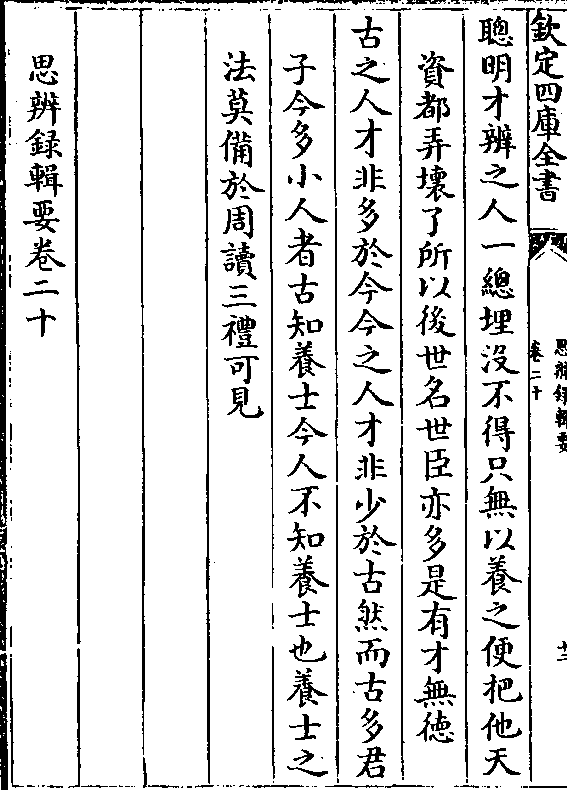 欽定四庫全書
思辨録輯要
卷二十
十三
聰明才辨之人一總埋沒不得只無以養之便把他天
資都弄壞了所以後世名世臣亦多是有才無徳
古之人才非多於今今之人才非少於古然而古多君
子今多小人者古知養士今人不知養士也養士之
法莫備於周讀三禮可見
思辨録輯要卷二十